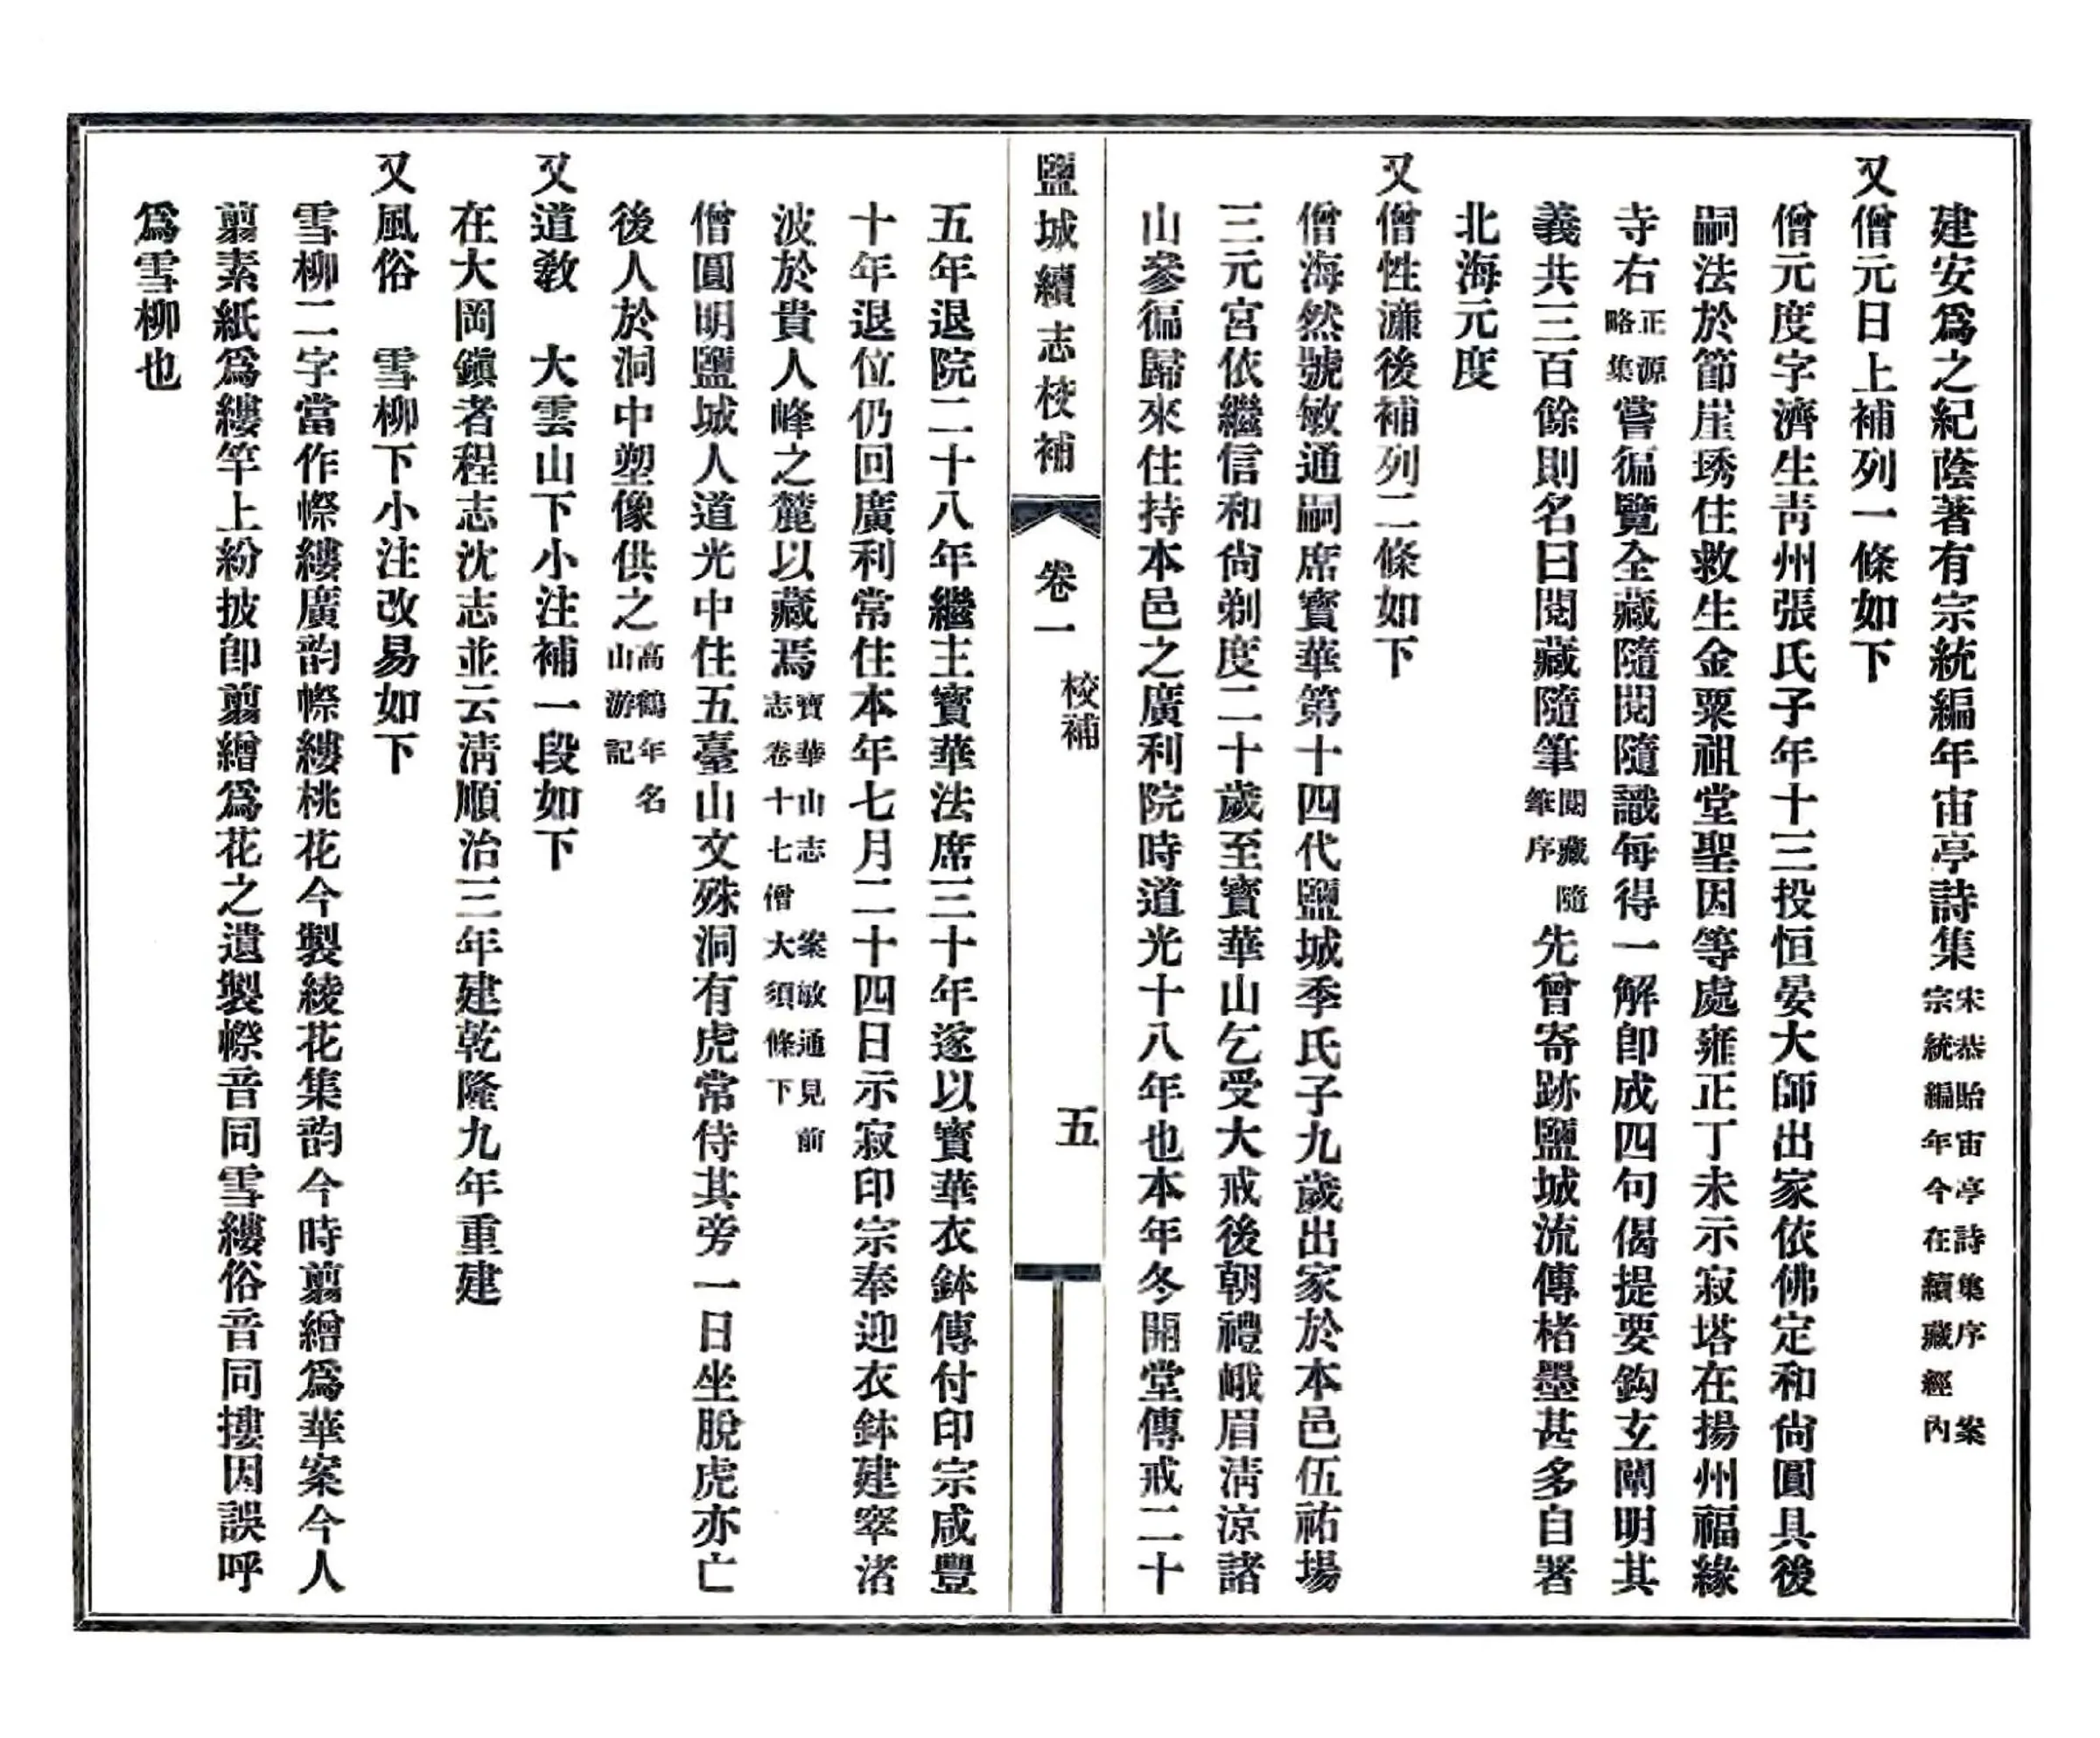 建安爲之紀蔭著有宗統編年宙亭詩集宋恭貽宙亭詩集序 案宗統編年今在續藏經內
又僧元日上補列一條如下
僧元度字濟生靑州張氏子年十三投恒晏大師出家依佛定和尙圓具後
嗣法於節崖琇住救生金粟祖堂聖因等處雍正丁未示寂塔在揚州福緣
寺右正源略集嘗徧覽全藏隨閱隨識每得一解卽成四句偈提要鈎玄闡明其
義共三百餘則名曰閱藏隨筆閱藏隨筆序先曾寄跡鹽城流傳楮墨甚多自署
北海元度
又僧性濂後補列二條如下
僧海然號敏通嗣席寳華第十四代鹽城季氏子九歲出家於本邑伍祐場
三元宮依繼信和尙剃度二十歲至寳華山乞受大戒後朝禮峨眉淸涼諸
山參徧歸來住持本邑之廣利院時道光十八年也本年冬開堂傳戒二十
鹽城續志校補 卷一 校補 五
五年退院二十八年繼主寳華法席三十年遂以寳華衣鉢傳付印宗咸豐
十年退位仍回廣利常住本年七月二十四日示寂印宗奉迎衣鉢建窣渚
波於貴人峰之麓以藏焉寳華山志志卷十七僧 案敏通見前大須條下
僧圓明鹽城人道光中住五臺山文殊洞有虎常侍其旁一日坐脫虎亦亡
後人於洞中塑像供之高鶴年名山游記
又道敎 大雲山下小注補一段如下
在大岡鎭者程志沈志並云淸順治三年建乾隆九年重建
又風俗 雪柳下小注改易如下
雪柳二字當作幧縷廣韵幧縷桃花今製綾花集韵今時翦繒爲華案今人
翦素紙爲縷竿上紛披卽翦繒爲花之遺製幧音同雪縷俗音同摟因誤呼
爲雪柳也